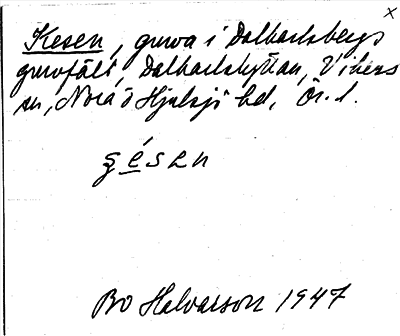 Kesen, gruva i Dalkarlsbergs
gruvfält, Dalkarlshyttan, Vikers
sn, Nora o Hjulsjö hd, Ör. l.
ʂésen
Bo Halvarson 1947